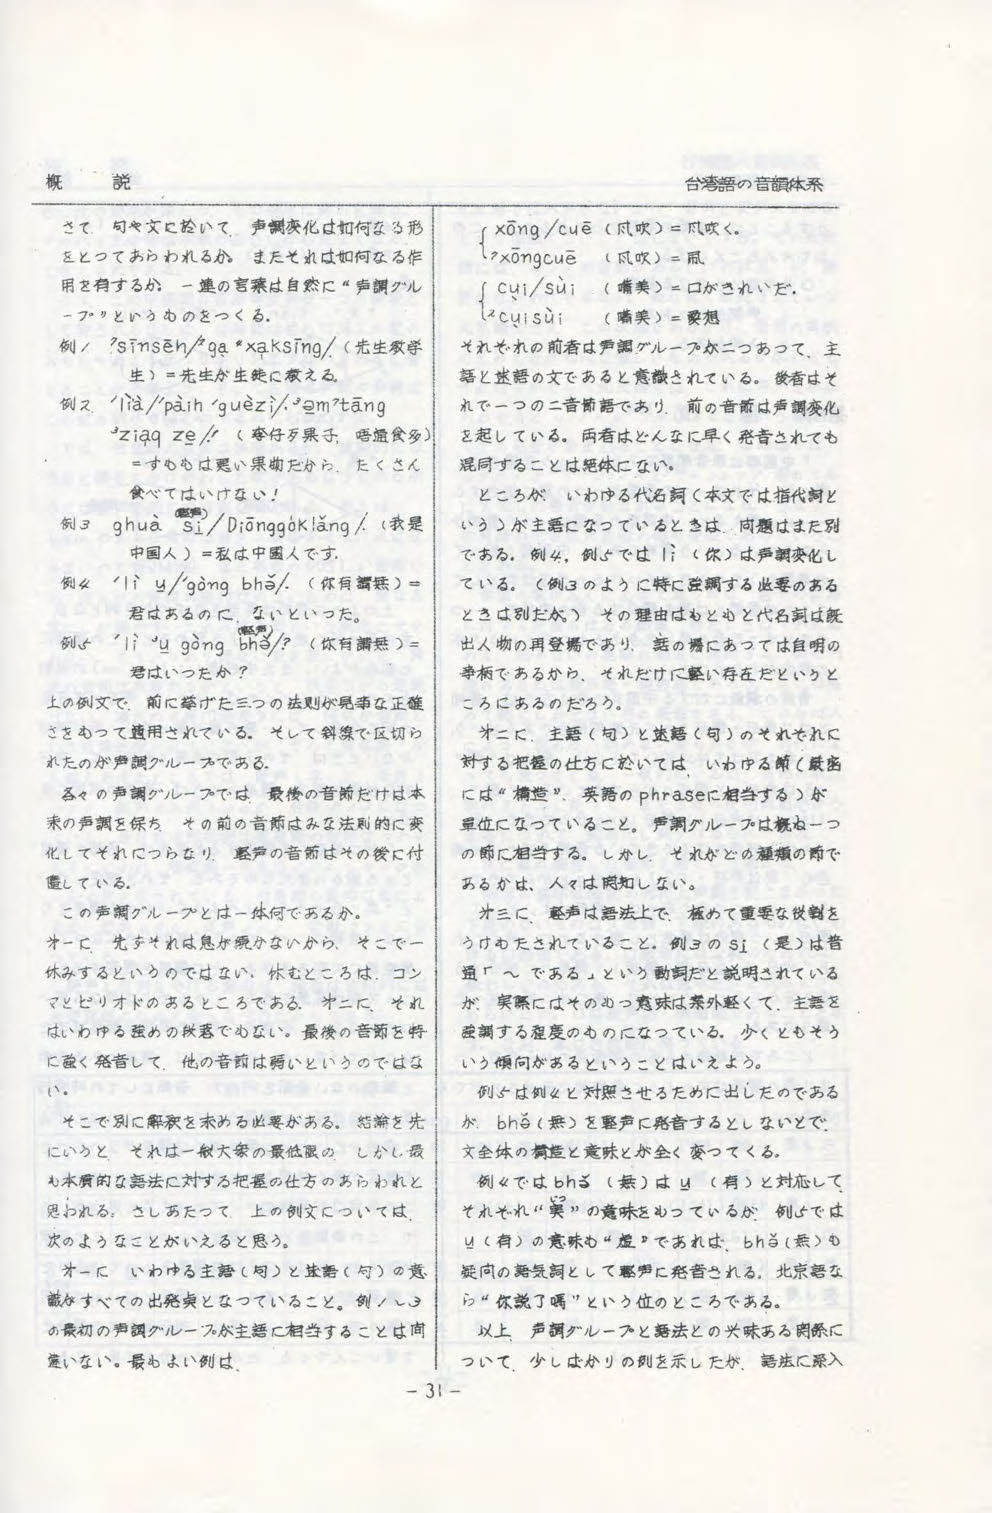 概　説
台湾語の音韻体系
さて、句や文に於いて、声調変化は如何なる形
をとつてあらわれるか。またそれは如何なる作
用を有するか。一連の言葉は自然に“声調グル
ープ”というものをつくる。
例1 ⁷sīnsēh/²ga̱ ⁸xa̱ksīng/.（先生教学
生）=先生が生徒に教える。
例2. ′lìà/′pàih ′guèzì/.³ə̱m⁷tāng
³zia̱q ze̱/!（李仔歹果子，唔通食多）
=すももは悪い果物だから、たくさん
食べてはいけない！
例3 ghuà si̱(軽声)/Diōnggókláng/.（我是
中國人）=私は中國人です。
例4 ′lì u̱/′gòng bhə̌/.（你有講無）=
君はあるのに、ないといった。
例5 ′lì ³u̱ gòng bhə̌(軽声)/?（你有講無）=
君はいったか？
上の例文で、前に挙げた三つの法則が見事な正確
さをもって適用されている。そして斜線で区切ら
れたのが声調グループである。
各々の声調グループでは、最後の音節だけは本
来の声調を保ち、その前の音節はみな法則的に変
化してそれにつらなり、軽声の音節はその後に付
置している。
この声調グループとは一体何であるか。
才一に、先ずそれは息が続かないから、そこで一
休みするというのではない。休むところは、コン
マとピリオドのあるところである。才二に、それ
はいわゆる強めの段落でもない。最後の音節を特
に強く発音して、他の音節は弱いというのではな
い。
そこで別に解釈を求める必要がある。結論を先
にいうと、それは一般大衆の最低限の、しかし最
も本質的な語法に対する把握の仕方のあらわれと
思われる。さしあたって、上の例文については、
次のようなことがいえると思う。
才一に、いわゆる主語（句）と述語（句）の意
識がすべての出発点となつていること。例1～3
の最初の声調グループが主語に相当することは間
違いない。最もよい例は、
xōng/cuē（風吹）=風吹く。
⁷xōngcuē（風吹）=凧
cu̱i/sùi（嘴美）=口がきれいだ。
²cu̱isùi（嘴美）=愛想
それぞれの前者は声調グループが二つあつて、主
語と述語の文であると意識されている。後者はそ
れで一つの二音節語であり、前の音節は声調変化
を起している。両者はどんなに早く発音されても
混同することは絶体にない。
ところが、いわゆる代名詞（本文では指代詞と
いう）が主語になっているときは、問題はまた別
である。例4，例5では lì（你）は声調変化し
ている。（例3のように特に強調する必要のある
ときは別だが。）その理由はもともと代名詞は既
出人物の再登場であり、話の場にあっては自明の
事柄であるから、それだけに軽い存在だというと
ころにあるのだろう。
才二に、主語（句）と述語（句）のそれぞれに
対する把握の仕方に於いては、いわゆる節（厳密
には“構造”、英語のphraseに相当する）が
単位になっていること。声調グループは概ね一つ
の節に相当する。しかし、それがどの種類の節で
あるかは、人々は関知しない。
才三に、軽声は語法上で、極めて重要な役割を
うけもたされていること。例3の si̱（是）は普
通「～である」という動詞だと説明されている
が、実際にはそのもつ意味は案外軽くて、主語を
強調する程度のものになっている。少くともそう
いう傾向があるということはいえよう。
例5は例4と対照させるために出したのである
が、bhə̌（無）を軽声に発音するとしないとで、
文全体の構造と意味とが全く変つてくる。
例4ではbhə̌（無）は u̱（有）と対応して、
それぞれ“実(じつ)”の意味をもっているが、例5では
u̱（有）の意味も“虚”であれば、bhə̌（無）も
疑問の語気詞として軽声に発音される。北京語な
ら“你説了嗎”という位のところである。
以上、声調グループと語法との興味ある関係に
ついて、少しばかりの例を示したが、語法に深入
- 31 -